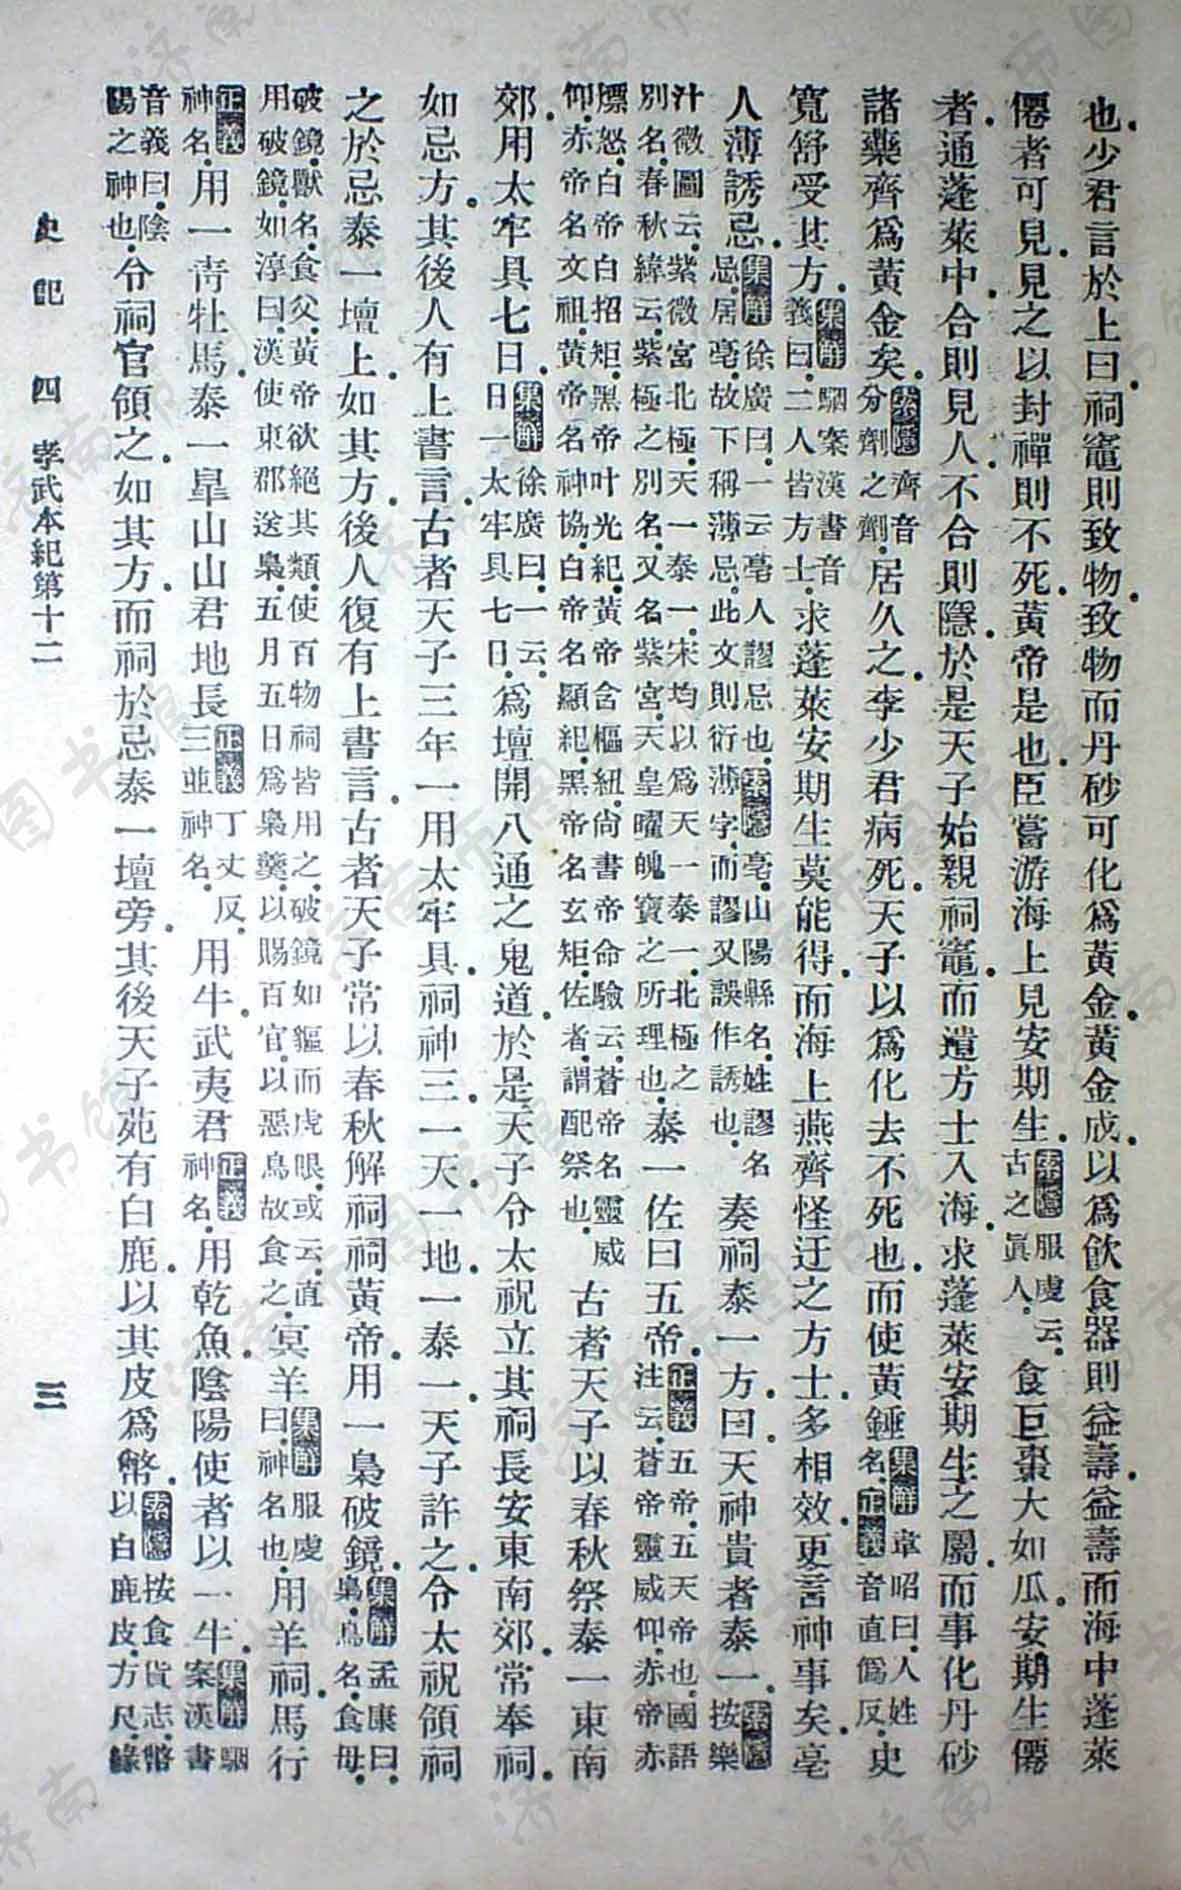 也少君言於上曰祠竈則致物致物而丹砂可化爲黃金黃金成以爲飮食器則益壽益壽而海中蓬萊
僊者可見見之以封禪則不死黃帝是也臣嘗游海上見安期生索隱服虔云古之眞人食巨棗大如瓜安期生僊
者通蓬萊中合則見人不合則隱於是天子始親祠竈而遣方士入海求蓬萊安期生之屬而事化丹砂
諸藥齊爲黃金矣索隱齊音分劑之劑居久之李少君病死天子以爲化去不死也而使黃錘集解韋昭曰人姓名正義音直僞反史
寬舒受其方集解駰案漢書音義曰二人皆方士求蓬萊安期生莫能得而海上燕齊怪迂之方士多相效更言神事矣亳
人薄誘忌集解徐廣曰一云亳人謬忌也索隱亳山陽縣名姓謬名忌居亳故下稱薄忌此文則衍薄字而謬又誤作誘也奏祠泰一方曰天神貴者泰一索隱按樂
汁微圖云紫微宮北極天一泰一宋均以爲天一泰一北極之別名春秋緯云紫極之別名又名紫宮天皇曜魄寶之所理也泰一佐曰五帝正義五帝五天帝也國語注云蒼帝靈威仰赤帝赤
熛怒白帝白招矩黑帝叶光紀黃帝含樞紐尙書帝命驗云蒼帝名靈威仰赤帝名文祖黃帝名神協白帝名顯紀黑帝名玄矩佐者謂配祭也古者天子以春秋祭泰一東南
郊用太牢具七日集解徐廣曰一云日一太牢具七日爲壇開八通之鬼道於是天子令太祝立其祠長安東南郊常奉祠
如忌方其後人有上書言古者天子三年一用太牢具祠神三一天一地一泰一天子許之令太祝領祠
之於忌泰一壇上如其方後人復有上書言古者天子常以春秋解祠祠黃帝用一梟破鏡集解孟康曰梟鳥名食母
破鏡獸名食父黃帝欲絕其類使百物祠皆用之破鏡如貙而虎眼或云直用破鏡如淳曰漢使東郡送梟五月五日爲梟羹以賜百官以惡鳥故食之冥羊集解服虔曰神名也用羊祠馬行
正義神名用一靑牡馬泰一皐山山君地長正義丁丈反三並神名用牛武夷君正義神名用乾魚陰陽使者以一牛集解駰案漢書
音義曰陰陽之神也令祠官領之如其方而祠於忌泰一壇旁其後天子苑有白鹿以其皮爲幣索隱按食貨志幣以白鹿皮方尺緣
史記 四 孝武本紀第十二 三